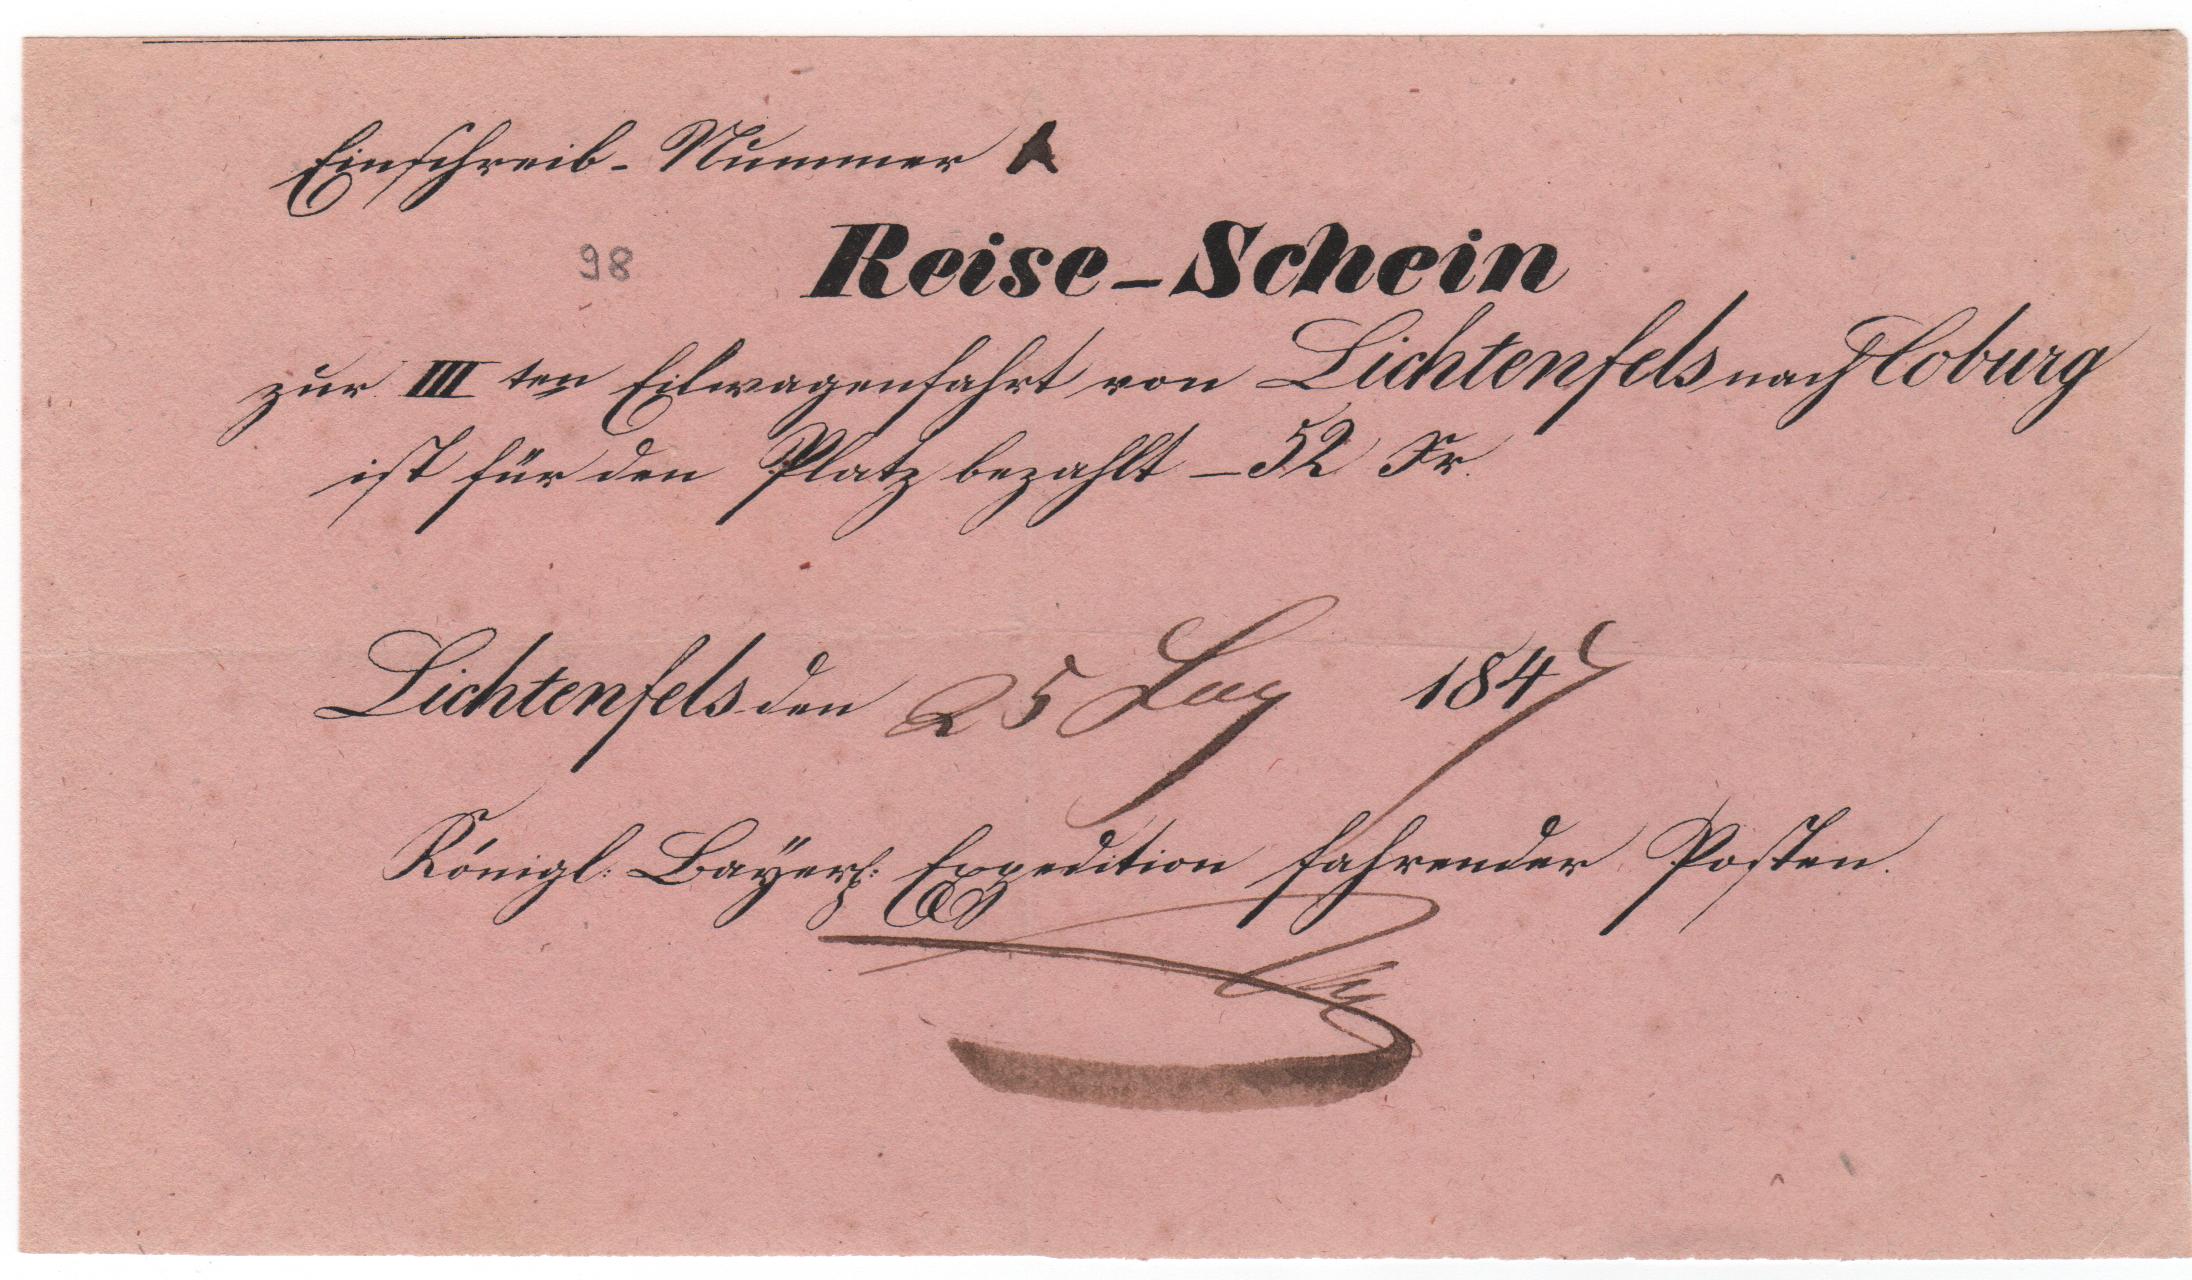 Einschreib-Nummer
98
Reise-Schein
zur IIIten Eilwagenfahrt von Lichtenfels nach Coburg
ist für den Platz bezahlt – 52 Kr.
Lichtenfels den 25 Aug 1847
Königl: Bayers: Expedition fahrender Posten.